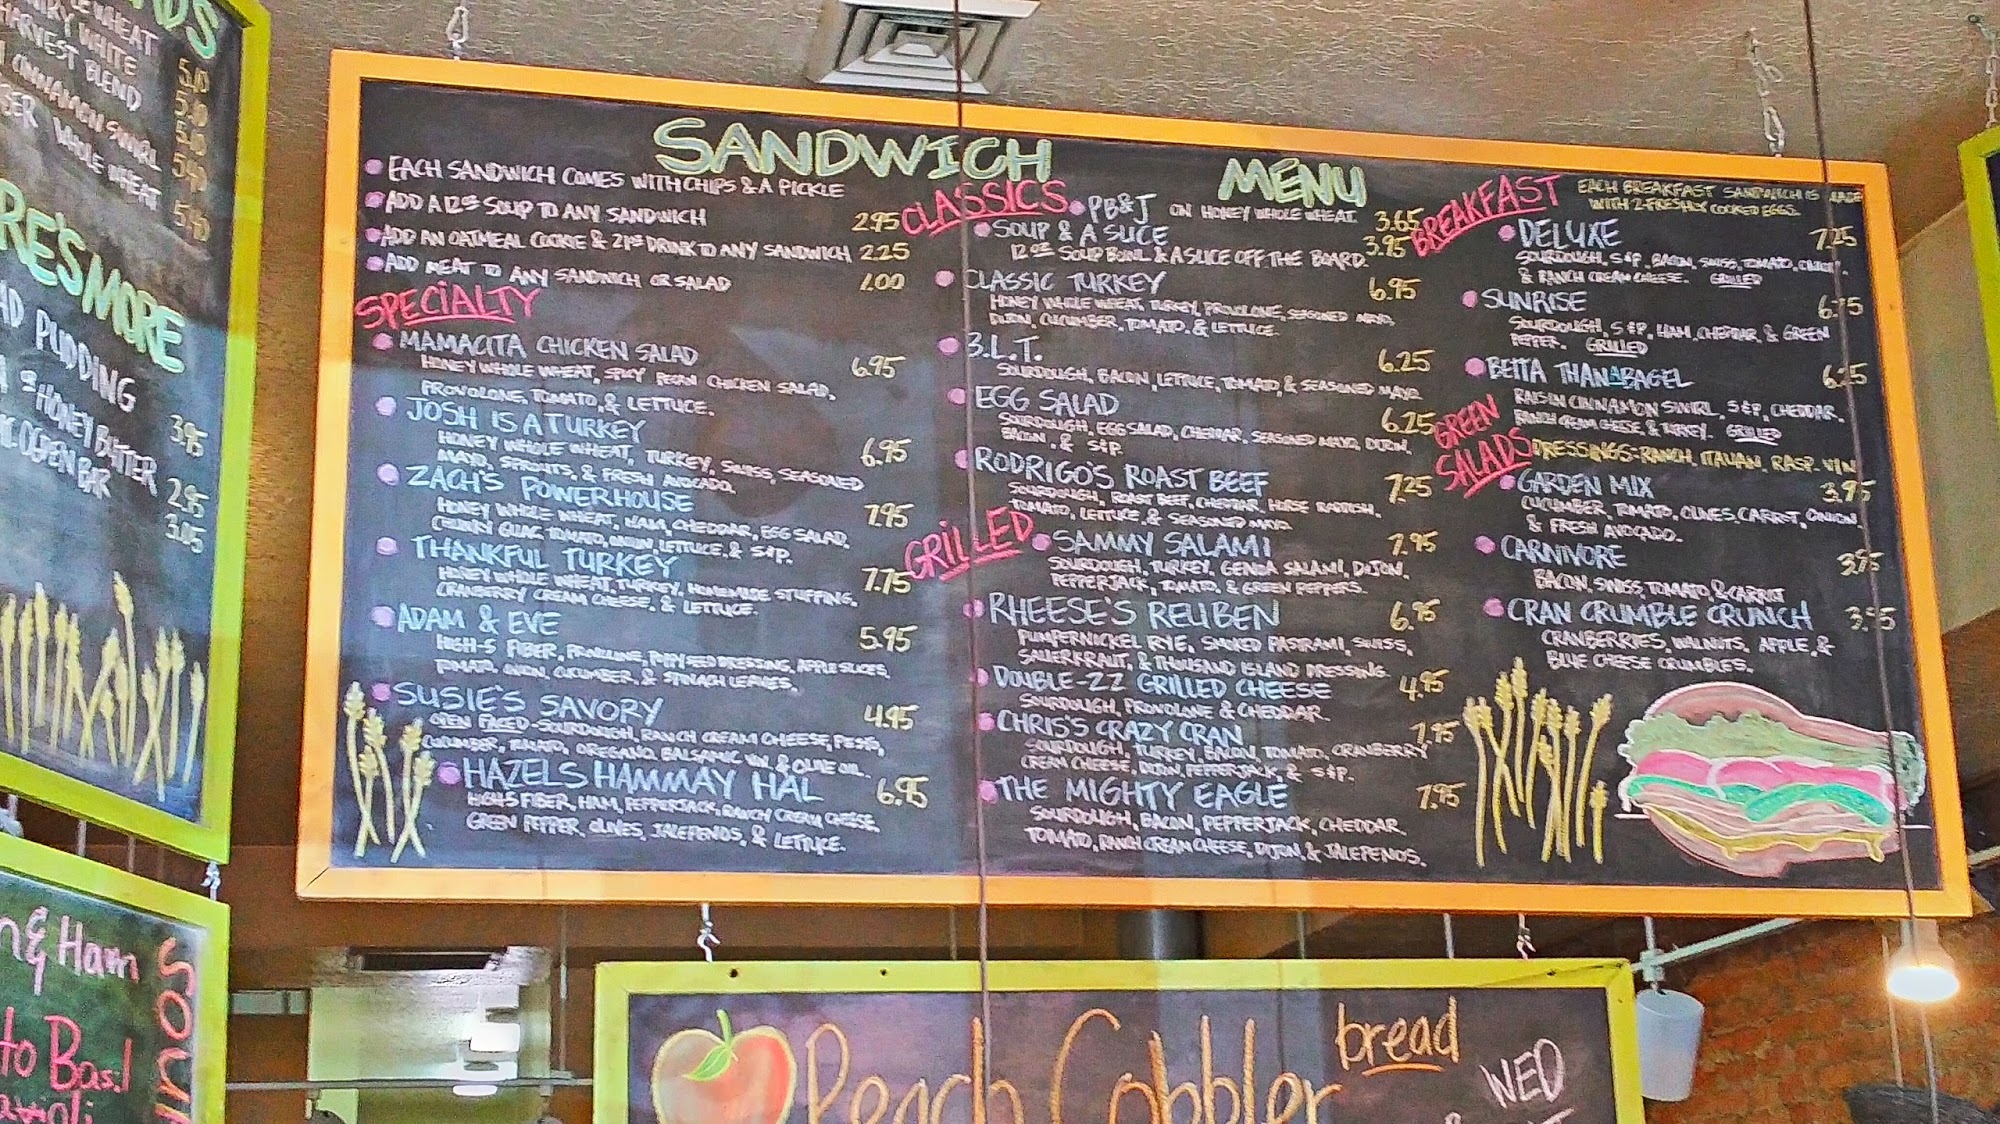 WHEAT
WHITE
HARVEST BLEND
CINNAMON SWIRL
WHOLE WHEAT
5.10
5.10
5.10
5.40
5.40
RE'SMORE
PUDDING 3.95
HONEY BUTTER 2.95
OGDEN BAR 3.05
& Ham
to Basil
SANDWICH MENU
EACH SANDWICH COMES WITH CHIPS & A PICKLE
ADD A 12oz SOUP TO ANY SANDWICH 2.95
ADD AN OATMEAL COOKIE & 21oz DRINK TO ANY SANDWICH 2.25
ADD MEAT TO ANY SANDWICH OR SALAD 1.00
SPECIALTY
MAMACITA CHICKEN SALAD 6.95
HONEY WHOLE WHEAT, SPICY PECAN CHICKEN SALAD,
PROVOLONE, TOMATO, & LETTUCE.
JOSH IS A TURKEY 6.95
HONEY WHOLE WHEAT, TURKEY, SWISS, SEASONED
MAYO, SPROUTS, & FRESH AVOCADO.
ZACH'S POWERHOUSE 7.95
HONEY WHOLE WHEAT, HAM, CHEDDAR, EGG SALAD,
CHUNKY GUAC, TOMATO, ONION, LETTUCE, & S&P.
THANKFUL TURKEY 7.75
HONEY WHOLE WHEAT, TURKEY, HOMEMADE STUFFING,
CRANBERRY CREAM CHEESE, & LETTUCE.
ADAM & EVE 5.95
HIGH-5 FIBER, PROVOLONE, POPPY SEED DRESSING, APPLE SLICES,
TOMATO, ONION, CUCUMBER, & SPINACH LEAVES.
SUSIE'S SAVORY 4.95
OPEN FACED-SOURDOUGH, RANCH CREAM CHEESE, PESTO,
CUCUMBER, TOMATO, OREGANO, BALSAMIC VIN. & OLIVE OIL.
HAZELS HAMMAY HAL 6.95
HIGH-5 FIBER, HAM, PEPPERJACK, RANCH CREAM CHEESE,
GREEN PEPPER, OLIVES, JALEPENOS, & LETTUCE.
CLASSICS
PB&J ON HONEY WHOLE WHEAT. 3.65
SOUP & A SLICE 3.95
12 oz SOUP BOWL & A SLICE OFF THE BOARD.
CLASSIC TURKEY 6.95
HONEY WHOLE WHEAT, TURKEY, PROVOLONE, SEASONED MAYO,
DIJON, CUCUMBER, TOMATO, & LETTUCE.
B.L.T. 6.25
SOURDOUGH, BACON, LETTUCE, TOMATO, & SEASONED MAYO.
EGG SALAD 6.25
SOURDOUGH, EGG SALAD, CHEDDAR, SEASONED MAYO, DIJON,
BACON, & S&P.
RODRIGO'S ROAST BEEF 7.25
SOURDOUGH, ROAST BEEF, CHEDDAR, HORSE RADISH,
TOMATO, LETTUCE, & SEASONED MAYO
GRILLED
SAMMY SALAMI 7.95
SOURDOUGH, TURKEY, GENOA SALAMI, DIJON,
PEPPERJACK, TOMATO, & GREEN PEPPERS.
RHEESE'S REUBEN 6.95
PUMPERNICKEL RYE, SMOKED PASTRAMI, SWISS,
SAUERKRAUT, & THOUSAND ISLAND DRESSING.
DOUBLE-ZZ GRILLED CHEESE 4.95
SOURDOUGH, PROVOLONE & CHEDDAR.
CHRIS'S CRAZY CRAN 7.95
SOURDOUGH, TURKEY, BACON, TOMATO, CRANBERRY
CREAM CHEESE, DIJON, PEPPERJACK, & S&P.
THE MIGHTY EAGLE 7.95
SOURDOUGH, BACON, PEPPERJACK, CHEDDAR,
TOMATO, RANCH CREAM CHEESE, DIJON, & JALEPENOS.
BREAKFAST
EACH BREAKFAST SANDWICH IS MADE
WITH 2 FRESHLY COOKED EGGS.
DELUXE 7.25
SOURDOUGH, S&P, BACON, SWISS, TOMATO, ONION,
& RANCH CREAM CHEESE. GRILLED
SUNRISE
SOURDOUGH, S&P, HAM, CHEDDAR, & GREEN
PEPPER. GRILLED
BETTA THAN A BAGEL
RAISIN CINNAMON SWIRL, S&P, CHEDDAR,
RANCH CREAM CHEESE, & TURKEY. GRILLED
GREEN SALADS
DRESSINGS: RANCH, ITALIAN, RASP. VIN
GARDEN MIX 3.95
CUCUMBER, TOMATO, OLIVES, CARROT, ONION,
& FRESH AVOCADO.
CARNIVORE 3.95
BACON, SWISS, TOMATO, & CARROT
CRAN CRUMBLE CRUNCH 3.95
CRANBERRIES, WALNUTS, APPLE, &
BLUE CHEESE CRUMBLES.
Peach Cobbler bread
WED